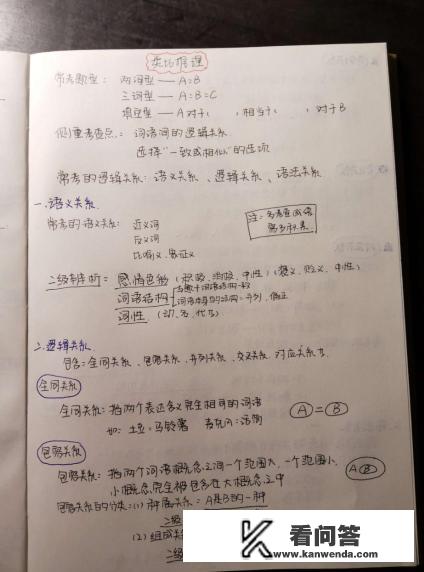 类比推理
常考题型: 两词型 — A:B
三词型 — A:B:C
填空型 — A对于( , 相当于( , 对于B
侧重考查点: 词语间的逻辑关系.
选择"一致或相似"的选项
常考的逻辑关系: 语义关系、逻辑关系、语法关系
一.语义关系.
常考的语义关系: 近义词
反义词
比喻义、象征义
注: 多考查成语
易多积累.
二级辨析: 感情色彩 (积极、消极、中性) (褒义、贬义、中性)
词语结构
词性 (动、名、代词)
二.逻辑关系.
包含: 全同关系、包容关系、并列关系、交叉关系. 对应关系
全同关系
全同关系: 指两个表达含义完全相同的词语
如: 土豆:马铃薯
A = B
包容关系
包容关系: 指两个词语概念之间一个范围大, 一个范围小,
小概念完全被包含在大概念之中
A B
包容关系的分类: (1) 种属关系: A是B的一种
二级
(2) 组成关
二级
看问答
www.kanwenda.com